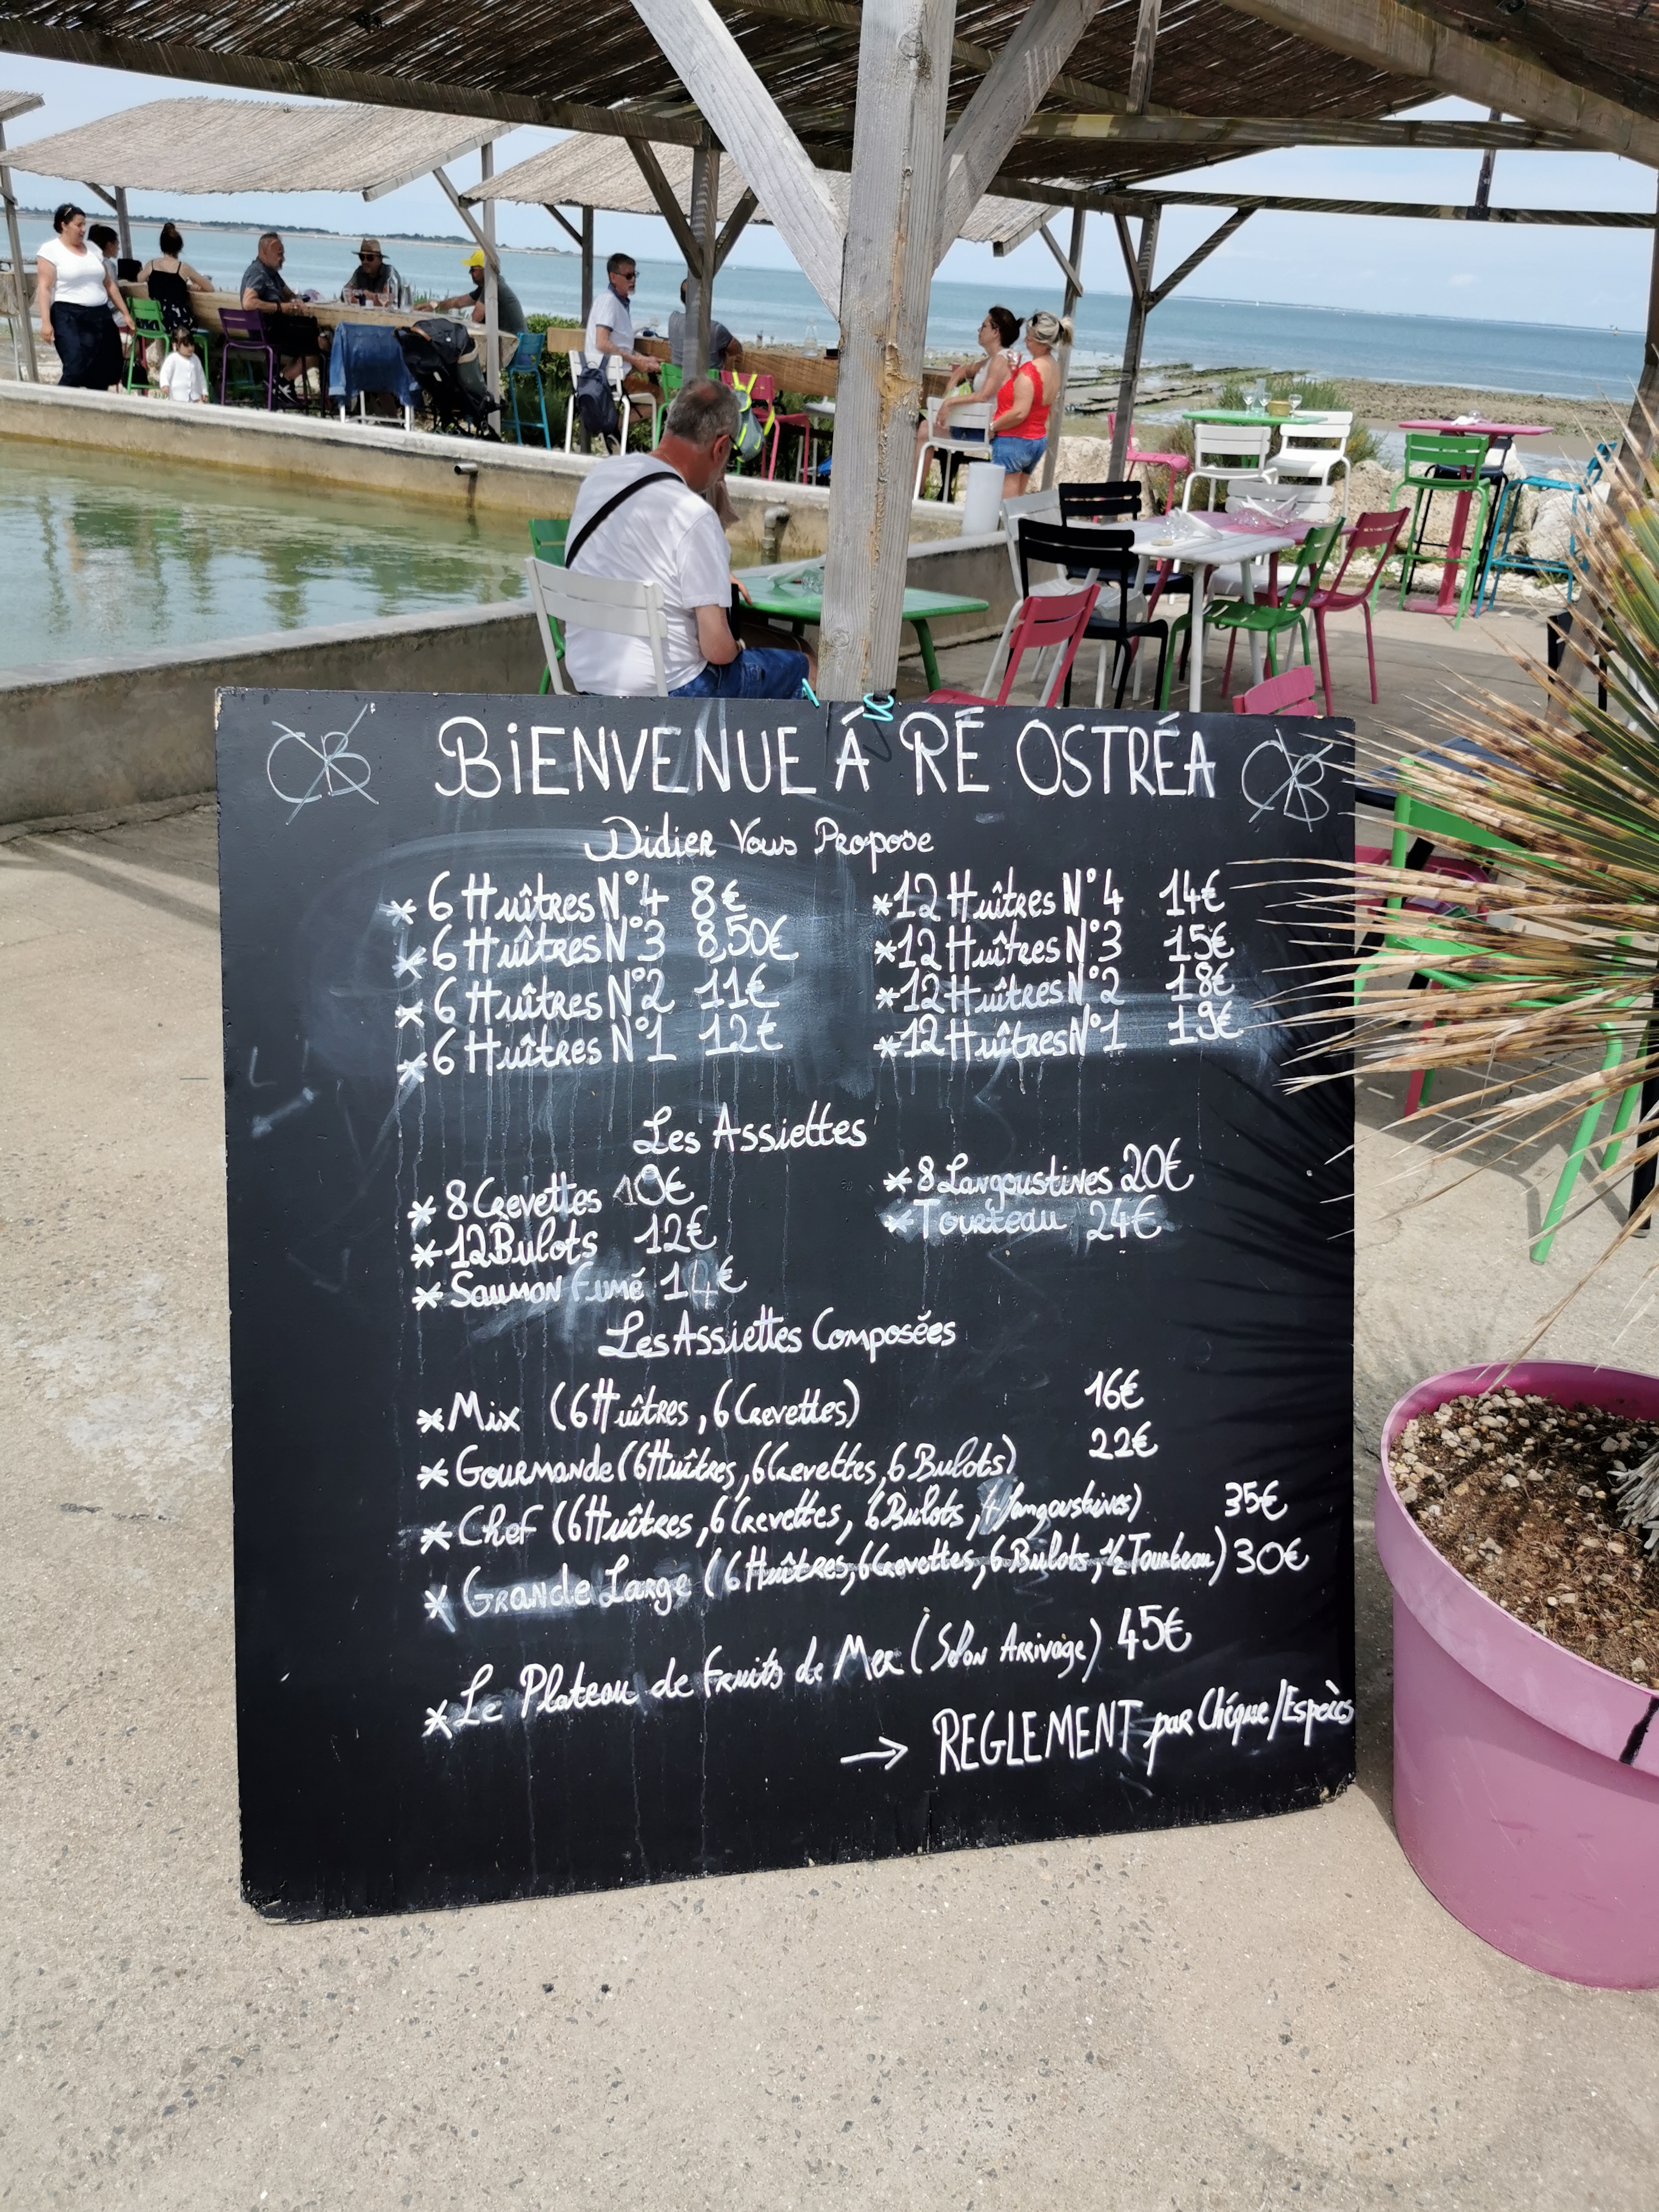 BiENVENUE Á RÉ OSTRÉA
Didier Vous Propose
* 6 Huîtres N°4 8€
* 6 Huîtres N°3 8,50€
* 6 Huîtres N°2 11€
* 6 Huîtres N°1 12€
* 12 Huîtres N°4 14€
* 12 Huîtres N°3 15€
* 12 Huîtres N°2 18€
* 12 Huîtres N°1 19€
Les Assiettes
* 8 Crevettes 10€
* 12 Bulots 12€
* Saumon Fumé 14€
* 8 Langoustines 20€
* Tourteau 24€
Les Assiettes Composées
* Mix (6 Huîtres, 6 Crevettes) 16€
* Gourmande (6 Huîtres, 6 Crevettes, 6 Bulots) 22€
* Chef (6 Huîtres, 6 Crevettes, 6 Bulots, 4 langoustines) 35€
* Grande Large (6 Huîtres, 6 Crevettes, 6 Bulots, 1/2 Tourteau) 30€
* Le Plateau de Fruits de Mer (Selon Arrivage) 45€
→ REGLEMENT par Chéque/Espèces